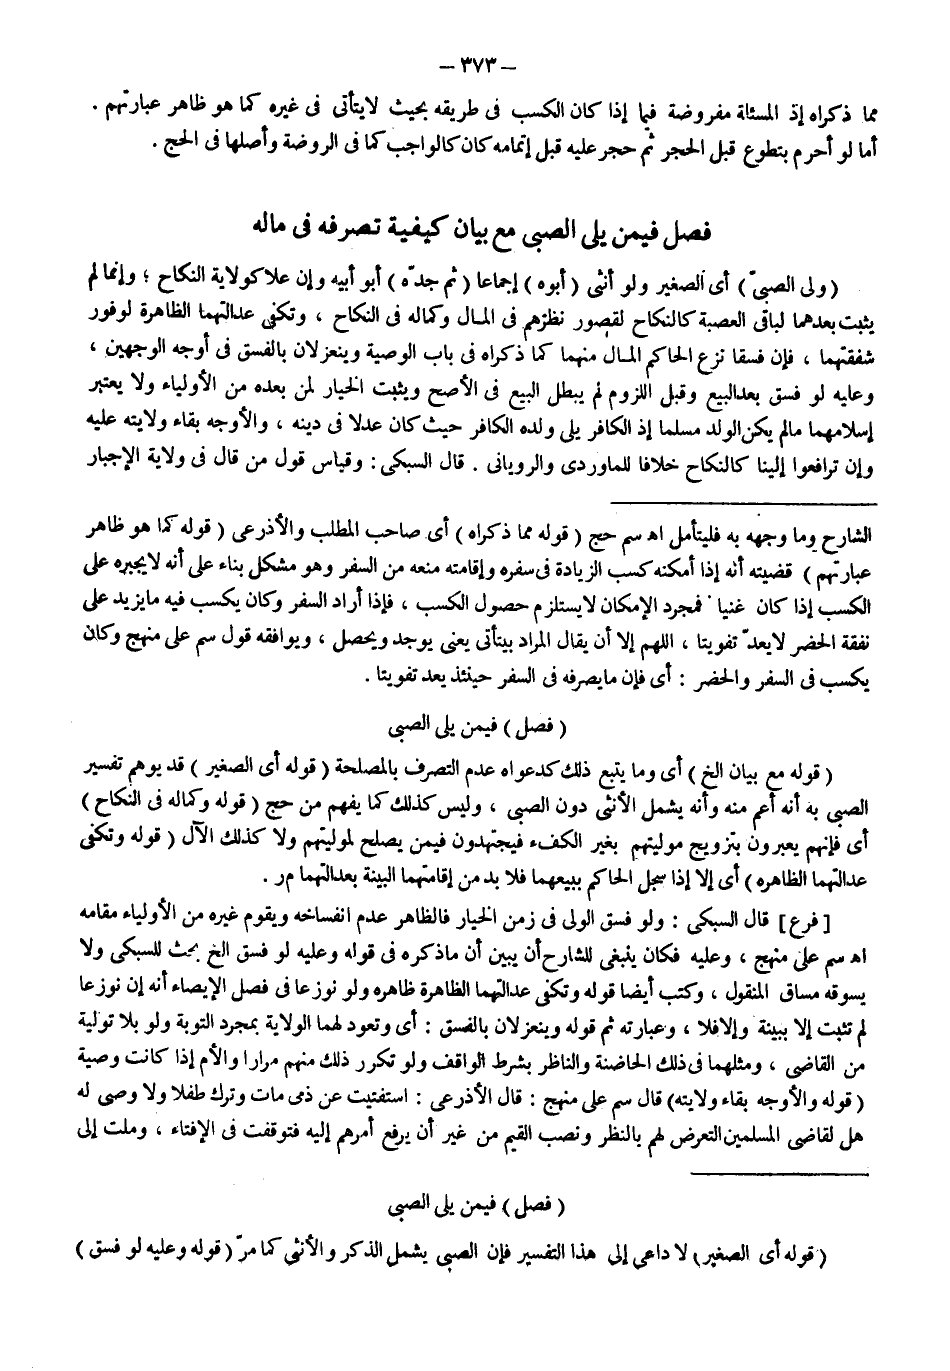 – ٣٧٣ –
مما ذكراه إذ المسئلة مفروضة فيما إذا كان الكسب فى طريقه بحيث لايتأتى فى غيره كما هو ظاهر عبارتهم .
أما لو أحرم بتطوع قبل الحجر ثم حجر عليه قبل إتمامه كان كالواجب كما فى الروضة وأصلها فى الحج .
فصل فيمن يلى الصبى مع بيان كيفية تصرفه فى ماله
( ولى الصبىّ ) أى الصغير ولو أنثى ( أبوه ) إجماعا ( ثم جدّه ) أبو أبيه وإن علا كولاية النكاح ؛ وإنما لم
يثبت بعدهما لباقى العصبة كالنكاح لقصور نظرهم فى المال وكماله فى النكاح ، وتكفى عدالتهما الظاهرة لوفور
شفقتهما ، فإن فسقا نزع الحاكم المال منهما كما ذكراه فى باب الوصية وينعزلان بالفسق فى أوجه الوجهين ،
وعليه لو فسق بعدالبيع وقبل اللزوم لم يبطل البيع فى الأصح ويثبت الخيار لمن بعده من الأولياء ولا يعتبر
إسلامهما مالم يكن الولد مسلما إذ الكافر يلى ولده الكافر حيث كان عدلا فى دينه ، والأوجه بقاء ولايته عليه
وإن ترافعوا إلينا كالنكاح خلافا للماوردى والرويانى . قال السبكى : وقياس قول من قال فى ولاية الإجبار
الشارح وما وجهه به فليتأمل اه سم حج ( قوله مما ذكراه ) أى صاحب المطلب والأذرعى ( قوله كما هو ظاهر
عبارتهم ) قضيته أنه إذا أمكنه كسب الزيادة فى سفره وإقامته منعه من السفر وهو مشكل بناء على أنه لايجبره على
الكسب إذا كان غنيا فمجرد الإمكان لايستلزم حصول الكسب ، فإذا أراد السفر وكان يكسب فيه مايزيد على
نفقة الحضر لايعدّ تفويتا ، اللهم إلا أن يقال المراد بيتأتى يعنى يوجد ويحصل ، ويوافقه قول سم على منهج وكان
يكسب فى السفر والحضر : أى فإن مايصرفه فى السفر حينئذ يعد تفويتا .
( فصل ) فيمن يلى الصبى
( قوله مع بيان الخ ) أى وما يتبع ذلك كدعواه عدم التصرف بالمصلحة ( قوله أى الصغير ) قد يوهم تفسير
الصبى به أنه أعم منه وأنه يشمل الأنثى دون الصبى ، وليس كذلك كما يفهم من حج ( قوله وكماله فى النكاح )
أى فإنهم يعبرون بتزويج موليتهم بغير الكفء فيجتهدون فيمن يصلح لموليتهم ولا كذلك الآل ( قوله وتكفى
عدالتهما الظاهره ) أى إلا إذا سجل الحاكم ببيعهما فلا بد من إقامتهما البينة بعدالتهما م ر .
[ فرع ] قال السبكى : ولو فسق الولى فى زمن الخيار فالظاهر عدم انفساخه ويقوم غيره من الأولياء مقامه
اه سم على منهج ، وعليه فكان ينبغى للشارح أن يبين أن ماذكره فى قوله وعليه لو فسق الخ بحث للسبكى ولا
يسوقه مساق المنقول ، وكتب أيضا قوله وتكفى عدالتهما الظاهرة ظاهره ولو نوزعا فى فصل الإيصاء أنه إن نوزعا
لم تثبت إلا ببينة وإلافلا ، وعبارته ثم قوله وينعزلان بالفسق : أى وتعود لهما الولاية بمجرد التوبة ولو بلا تولية
من القاضى ، ومثلهما فى ذلك الحاضنة والناظر بشرط الواقف ولو تكرر ذلك منهم مرارا والأم إذا كانت وصية
( قوله والأوجه بقاء ولايته) قال سم على منهج : قال الأذرعى : استفتيت عن ذمى مات وترك طفلا ولا وصى له
هل لقاضى المسلمين التعرض لهم بالنظر ونصب القيم من غير أن يرفع أمرهم إليه فتوقفت فى الإفتاء ، وملت إلى
( فصل ) فيمن يلى الصبى
( قوله أى الصغير ) لا داعى إلى هذا التفسير فإن الصبى يشمل الذكر والأنثى كما مرّ ( قوله وعليه لو فسق )